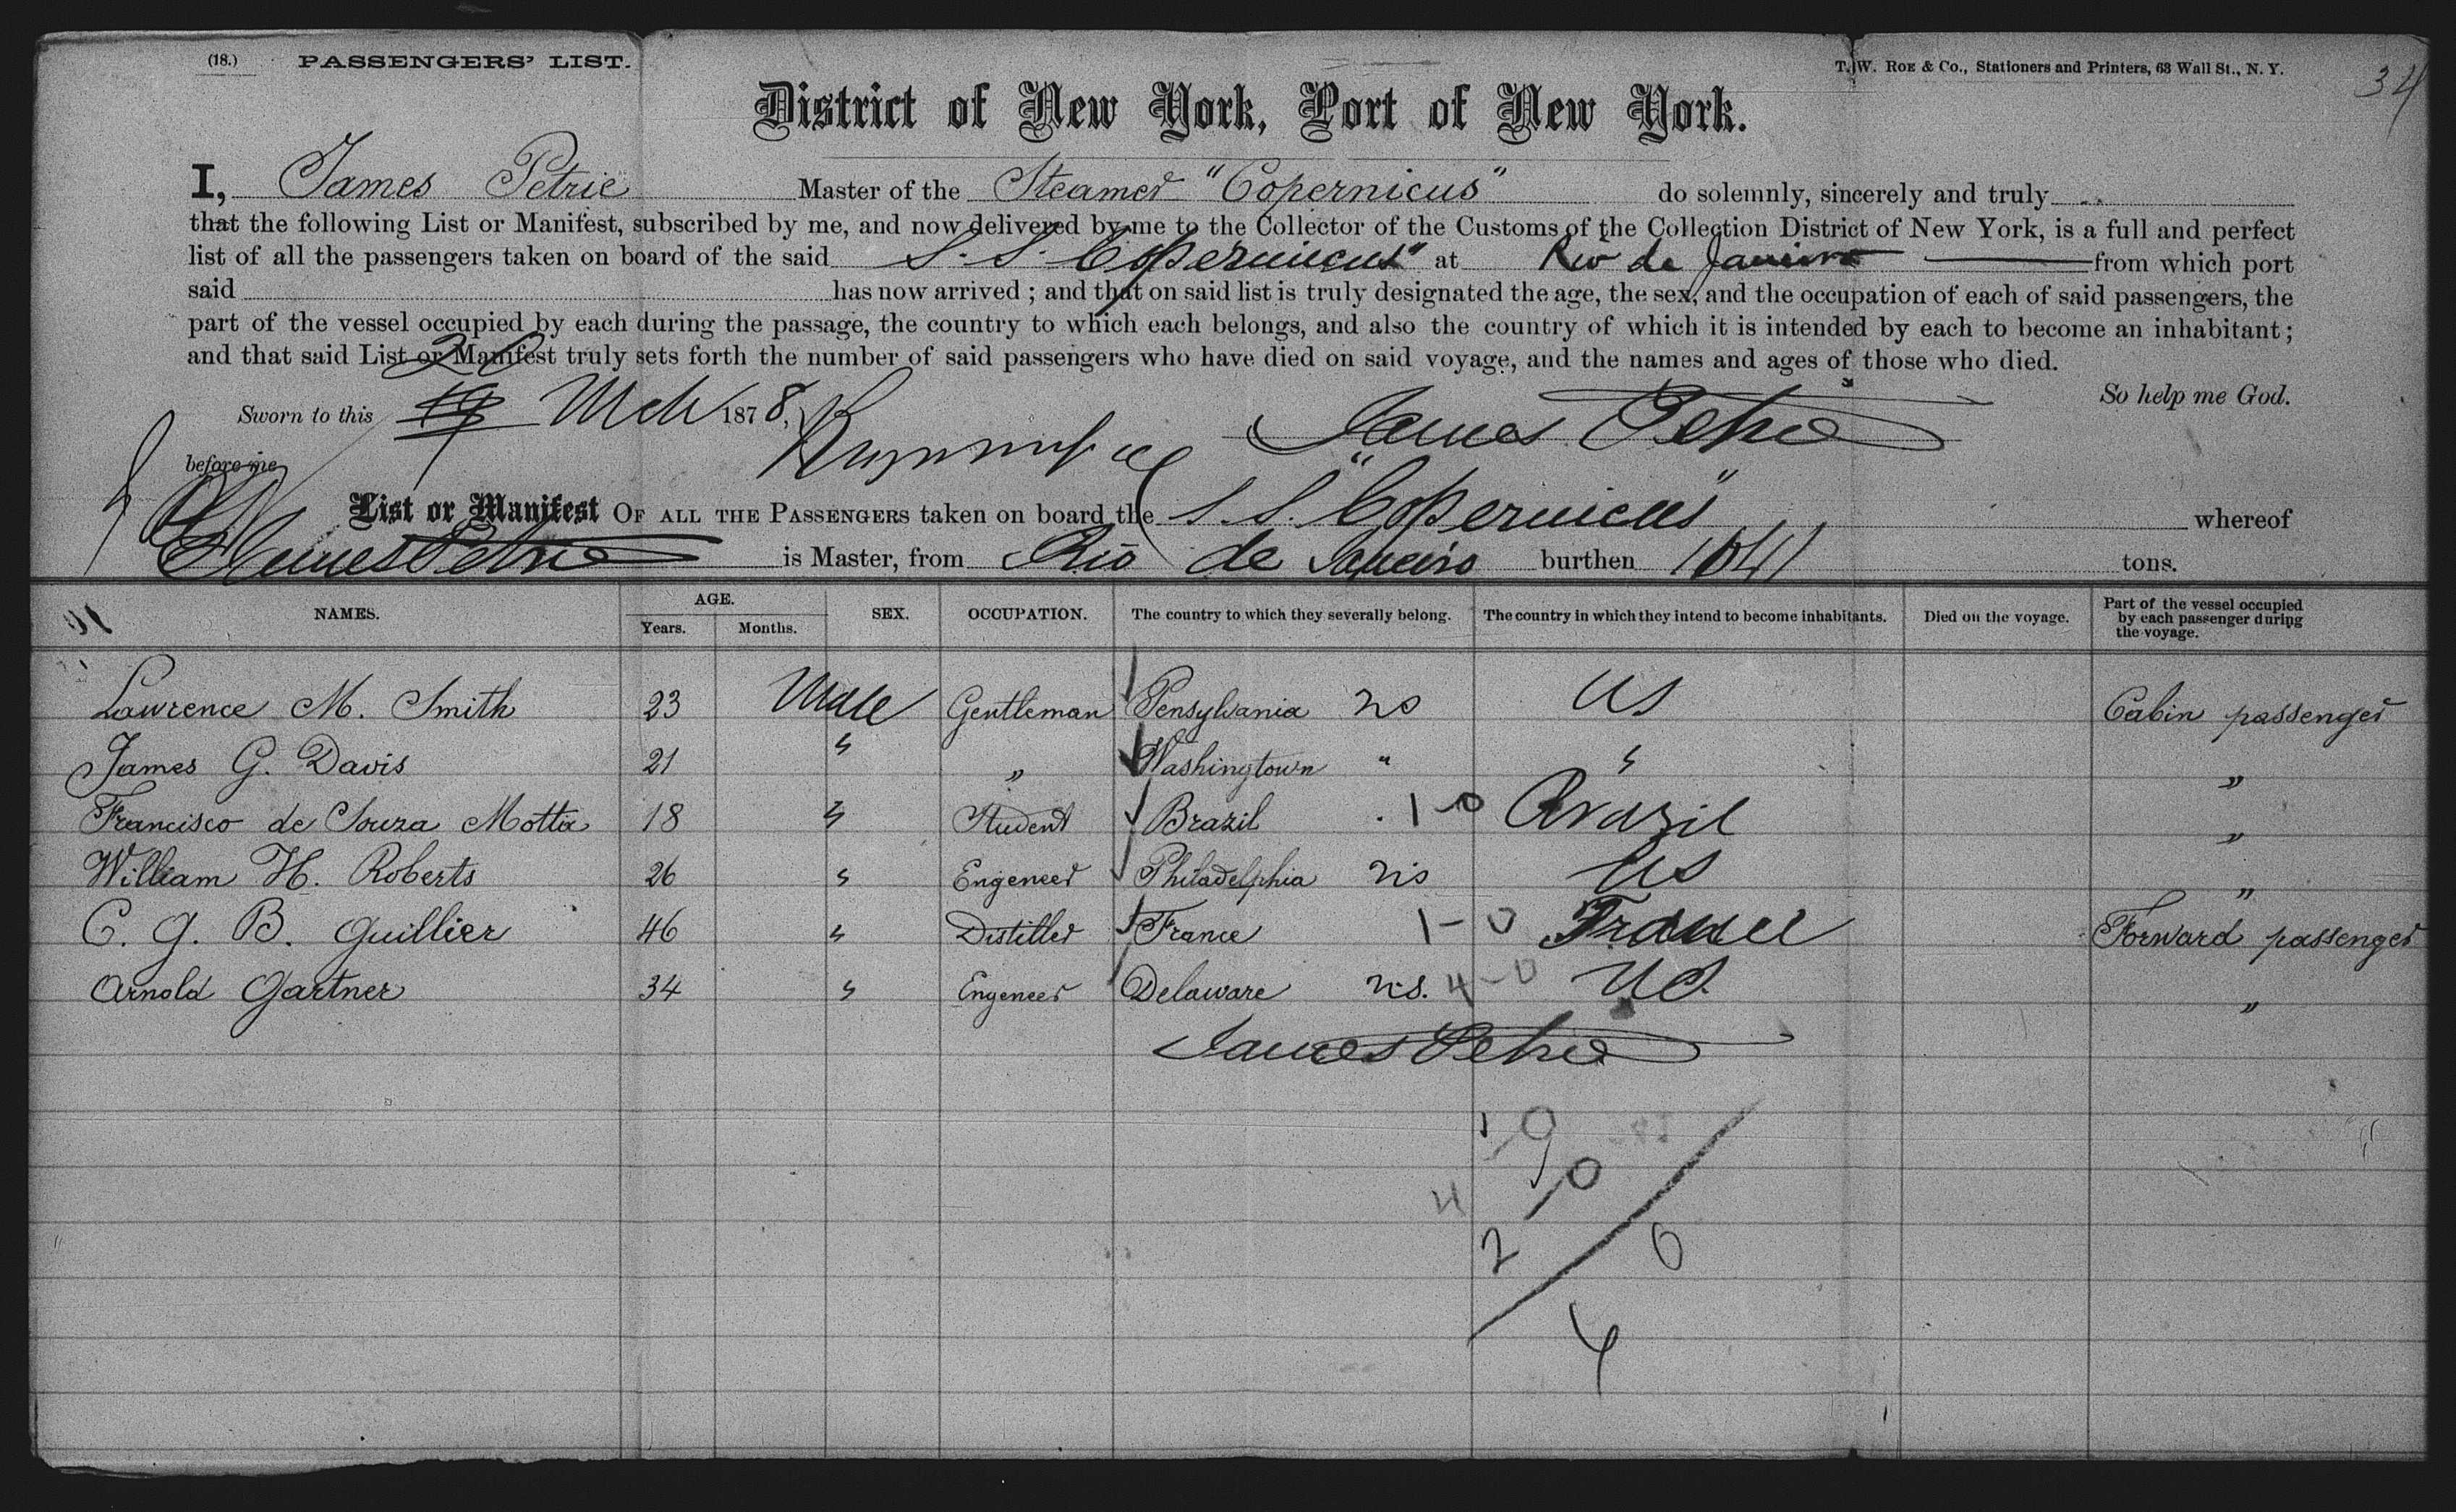 (18.) PASSENGERS' LIST. T. W. ROE & Co., Stationers and Printers, 63 Wall St., N. Y. 34
District of New York, Port of New York.
I, James Petrie Master of the Steamer "Copernicus" do solemnly, sincerely and truly
that the following List or Manifest, subscribed by me, and now delivered by me to the Collector of the Customs of the Collection District of New York, is a full and perfect
list of all the passengers taken on board of the said S. S. Copernicus" at Rio de Janeiro from which port
said has now arrived ; and that on said list is truly designated the age, the sex, and the occupation of each of said passengers, the
part of the vessel occupied by each during the passage, the country to which each belongs, and also the country of which it is intended by each to become an inhabitant ;
and that said List or Manifest truly sets forth the number of said passengers who have died on said voyage, and the names and ages of those who died.
So help me God.
Sworn to this 20 19 Mch 1878, James Petrie
before me
List or Manifest OF ALL THE PASSENGERS taken on board the S. S. "Copernicus" whereof
James Petrie is Master, from Rio de Janeiro burthen tons.
NAMES. AGE. Years. Months. SEX. OCCUPATION. The country to which they severally belong. The country in which they intend to become inhabitants. Died on the voyage. Part of the vessel occupied by each passenger during the voyage.
Lawrence M. Smith 23 Male Gentleman Pensylvania US Cabin passenger
James G. Davis 21 " " Washingtown " " "
Francisco de Souza Motta 18 " Student Brazil 1-0 Brazil "
William H. Roberts 26 " Engeneer Philadelphia US "
C. G. B. Guillier 46 " Distiller France 1-0 France Forward passenger
Arnold Gartner 34 " Engeneer Delaware U.S. 4-0 US. "
James Petrie
4
2 0